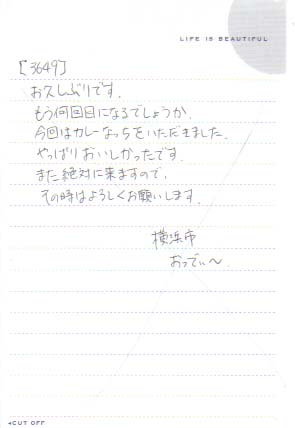 LIFE IS BEAUTIFUL
[3649]
お久しぶりです。
もう何回目になるでしょうか。
今回はカレーなっちをいただきました。
やっぱりおいしかったです。
また絶対に来ますので、
その時はよろしくお願いします。
横浜市
おってぃ〜
CUT OFF